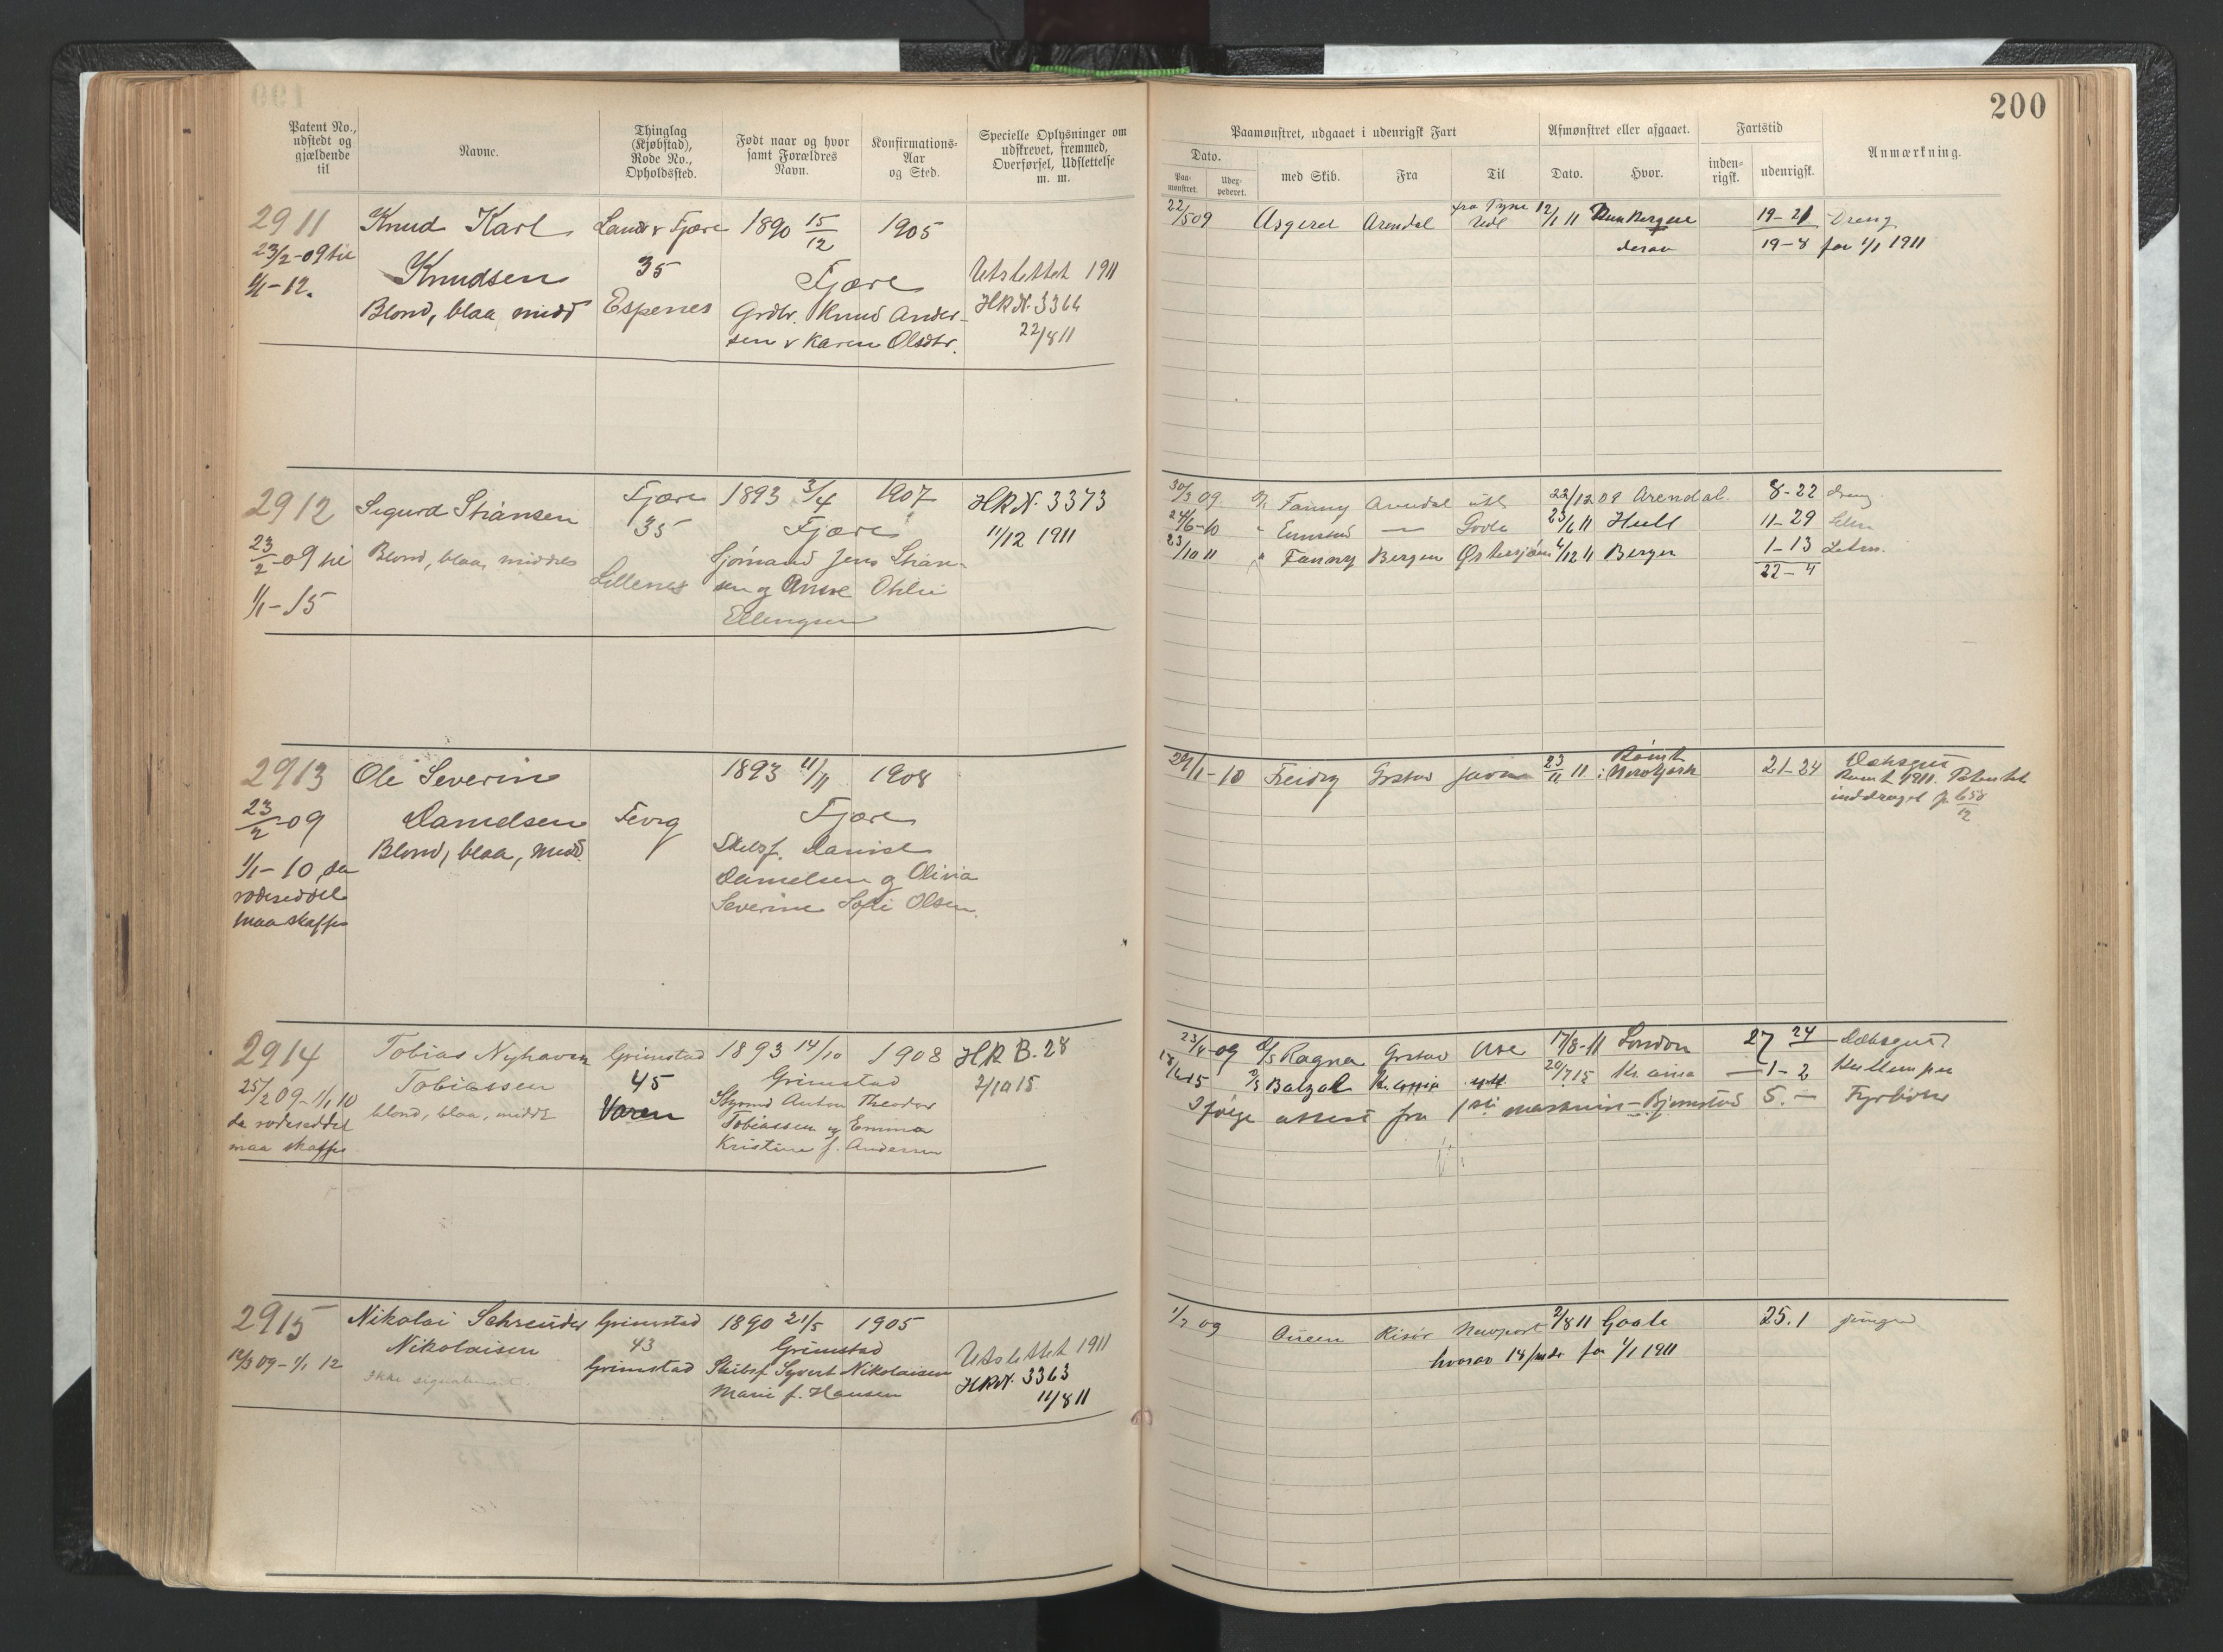 200
Patent No.,
udstedt og
gjældende
til
Navne.
Thinglag
(Kjøbstad),
Rode No.,
Opholdssted.
Født naar og hvor
samt Forældres
Navn.
Konfirmations-
Aar
og Sted.
Specielle Oplysninger om
udskrevet, fremmed,
Overførsel, Udslettelse
m. m.
Paamønstret, udgaaet i udenrigsk Fart
Dato.
Paa-
mønstret.
Udex-
pederet.
med Skib.
Fra
Til
Afmønstret eller afgaaet.
Dato.
Hvor.
Fartstid
inden-
rigsk.
udenrigsk.
Anmærkning.
2911
23/2-09 til
1/1-12.
Knud Karl
Knudsen
Blond, blaa, midd
Landv Fjære
35
Espenes
1890 15/12
Fjære
Grdbr. Knud Ander-
sen v Karen Olsdtr.
1905
Utslettet 1911
HR N. 3364
22/8 11
22/5 09 Asgerd Arendal fra Tyne 12/1 11
19-21 Dreng
derav 19-8 før 1/1 1911
2912
23/2-09 til
1/1-15
Sigurd Stiansen
Blond, blaa, middels
Fjære
35
Lillenes
1893 3/4
Fjære
Sjømand Jens Stian-
sen og Anne Othlie
Ellingsen
1907
HR N. 3373
11/12 1911
30/3 09. Fanny Arendal utl 22/12 09 Arendal. 8-22 dreng
24/6-10 — 23/6 11 Hull 11-29
23/10 11 " Fanny Bergen Østersjøen 4/12 11 Bergen 1-13 Letm.
22-4
2913
23/2-09
1/1-10, da
rodeseddel
maa skaffes
Ole Severin
Danielsen
Blond, blaa, midd.
Fevig
1893 11/11
Fjære
Skibsf. Daniel
Danielsen og Olivia
Severine Sofie Olsen.
1908
29/1-10 Freidig Grstad 23/11 11 Rømt
i Newojork
21-24 Dæksgut
Rømt 1911. Patentet
inddraget
2914
25/2 09-1/1 10
da rodeseddel
maa skaffes
Tobias Nyhaven
Tobiassen
blond, blaa, middl
Grimstad
45
Varen
1893 14/10
Grimstad
Styrmd Anton Theodor
Tobiassen og Emma
Kristine f. Andersen
1908
HR B. 28
2/10 15
23/4-09 D/S Ragna Grstad 17/8-11 London 27 24 Dæksgut
D/S Balzal Kr.ania 20/7 15 Kr.ania — 1-2 Kullemper
I følge attest fra 1ste maskinist Bjørnstad 5.— Fyrbøter
2915
12/3 09-1/1 12
Nikolai Schreuder
Nikolaisen
Ikke signalement.
Grimstad
43
Grimstad
1890 21/5
Grimstad
Skibsf. Syvert Nikolaisen
Marie f. Hansen
1905
Utslettet 1911
HR N. 3363
11/8 11
Risør Newport 2/8 11 Goole 25.1 jungmd
hvorav 18 mdr før 1/1 1911